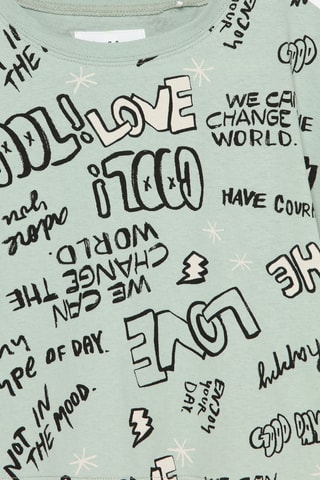 IN
THE
ENJOY
YOUR
DAY.
GOOD
LOVE
WE CAN
CHANGE THE
WORLD.
COOL!
adore
you
HAVE COUR
WE CAN
CHANGE THE
WORLD.
HE
LOVE
OF DAY.
happy
ENJOY
YOUR
DAY.
NOT IN
THE MOOD.
GOOD DAY